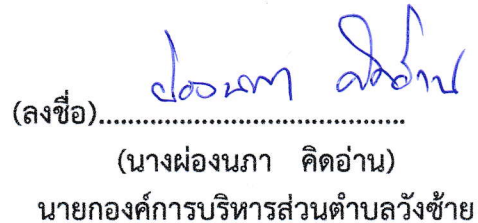 ผ่องนภา คิดอ่าน
(ลงชื่อ)..........................................
(นางผ่องนภา คิดอ่าน)
นายกองค์การบริหารส่วนตำบลวังซ้าย